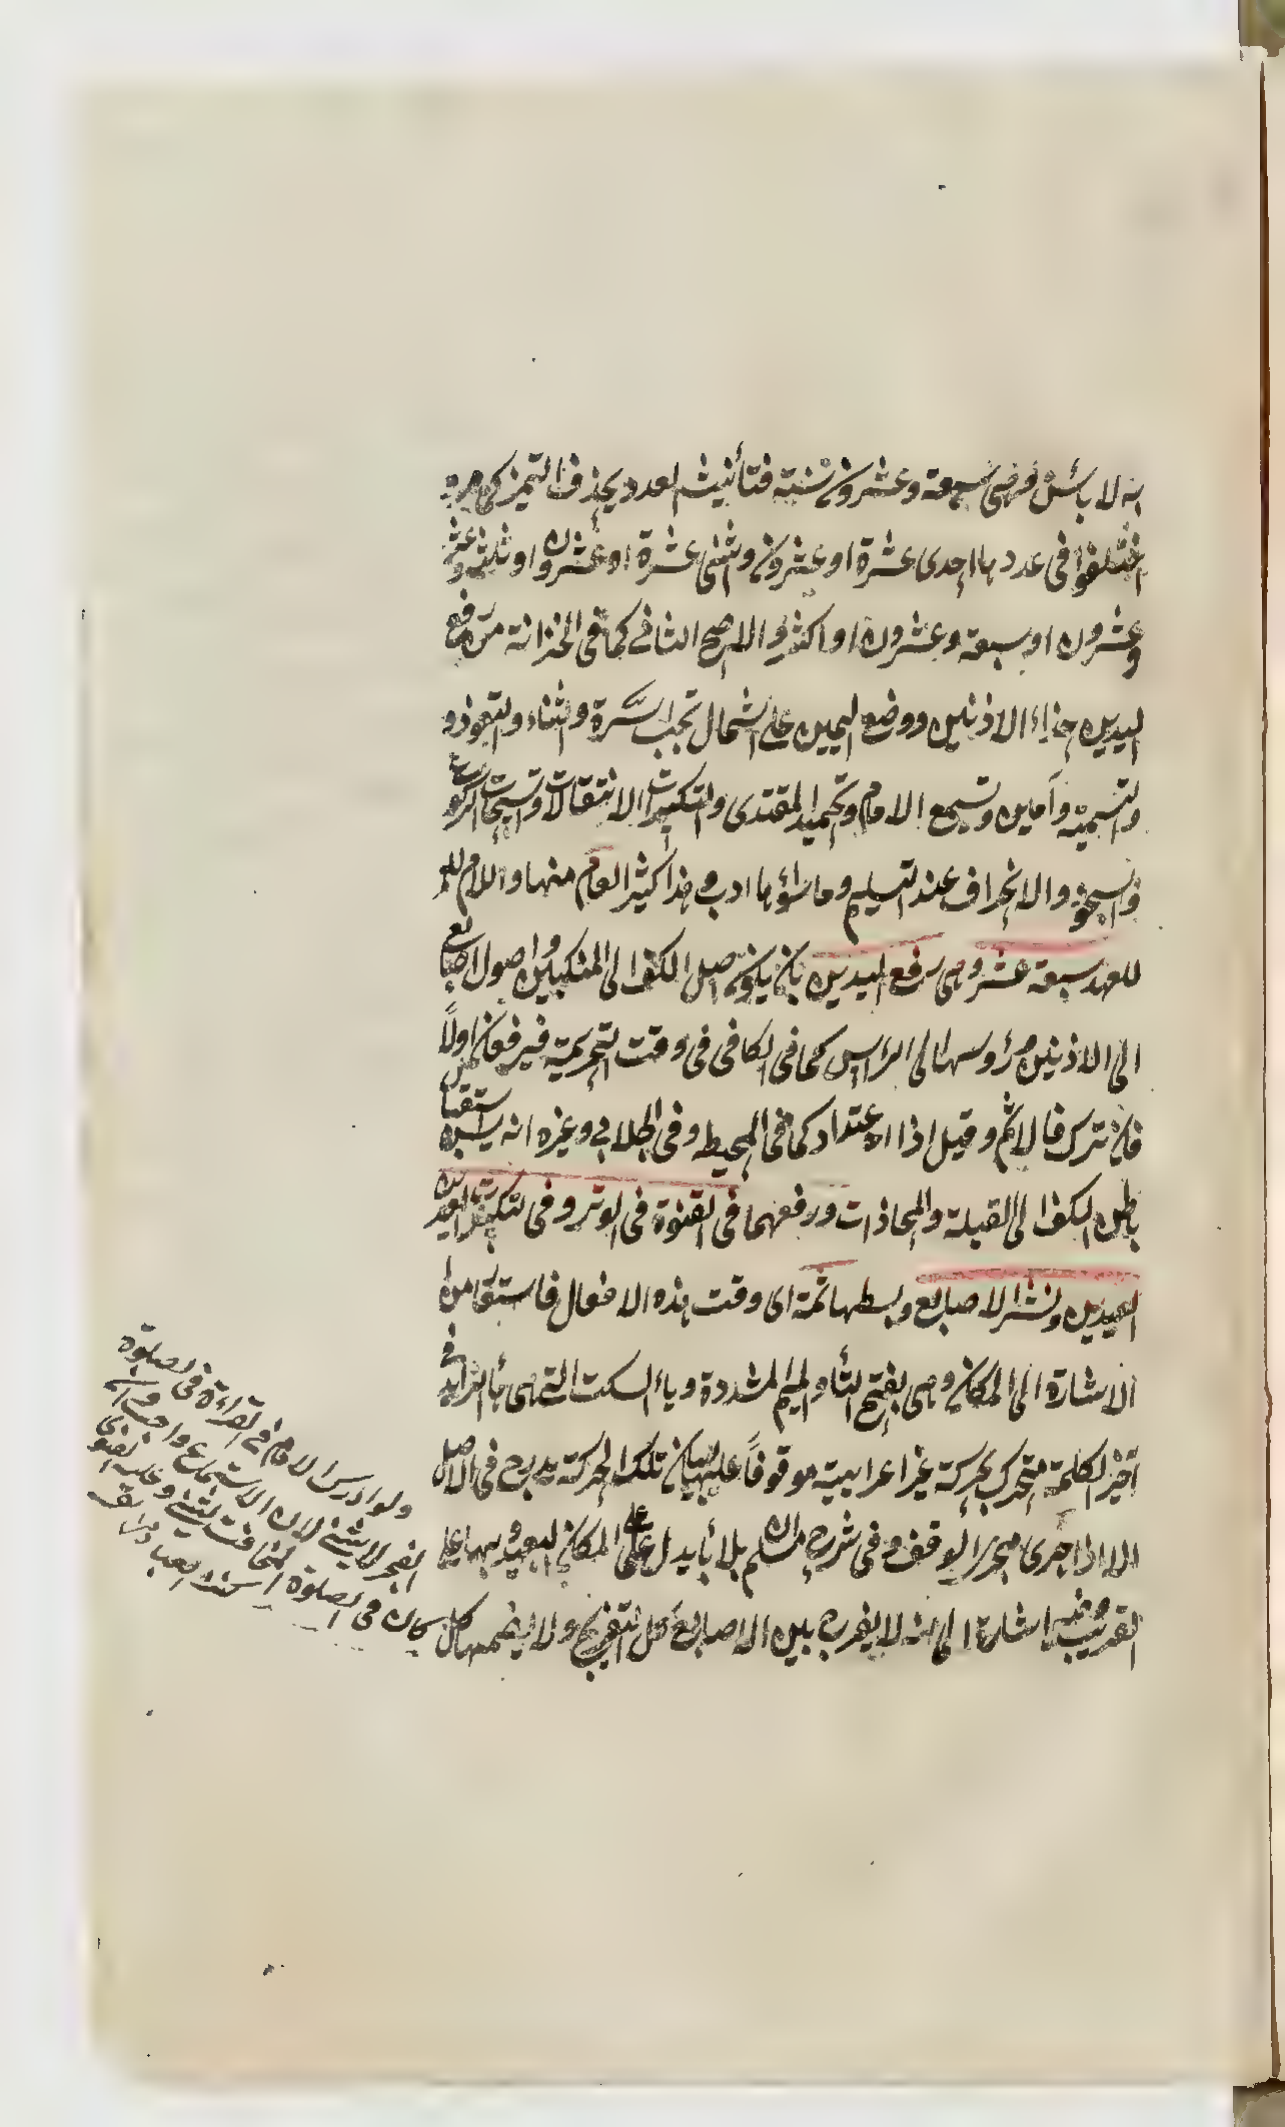 به لا بأس فهي سبعة وعشرون سنة فتأنيث العدد بحذف التميز كما مر
اختلفوا في عددها احدى عشرة او عشرون واثنى عشرة او عشرون او ثلثة
وعشرون او سبعة وعشرون او اكثر والاصح الثاني كما في الخزانة من رفع
اليدين حذاء الاذنين ووضع اليمين على الشمال تحت السرة والثناء والتعوذ و
والتسمية وآمين وتسميع الامام وتحميد المقتدى والتكبيرات الانتقالات وتسبيحات الركوع
والسجود والانحراف عند التسليم وما سواها ادب وهذا كثير العام منها واللام
للعهد سبعة عشر وهي رفع اليدين بان يكون اصل الكف الى المنكبين واصول اصابع
الى الاذنين ورؤسها الى الرأس كما في الكافي في وقت التحريمة فيرفعان اولاً
فان ترك فالاثم وقيل اذا اعتاد كما في المحيط وفي الجلابي وغيره انه يستقبل
باطن الكف الى القبلة والمحاذات ورفعهما في القنوة في الوتر وفي تكبيرات العيدين
العيدين ونشر الاصابع وبسطها ثمة اى وقت هذه الافعال فاستعير من
الاشارة الى المكان وهي بفتح الثاء والميم المشددة وهاء السكت التي هي هاء الزايد في
آخر الكلمة متحرك بحركة غير اعرابية موقوفاً عليها لبيان تلك الحركة يدرج في الاصل
الا اذا اجرى مجرى الوقف وفي شرح مسلم بلا هاء يدل على المكان البعيد وبها على
القريب وفيه اشارة الى انه لا يفرج بين الاصابع كل التفريج ولا يضمها كل
ولو ادرك الامام في القراءة في الصلوة
الفجر لا يثني لان الاستماع واجب وان
كان في الصلوة المخافت يثني وعليه الفتوى
كنز العباد